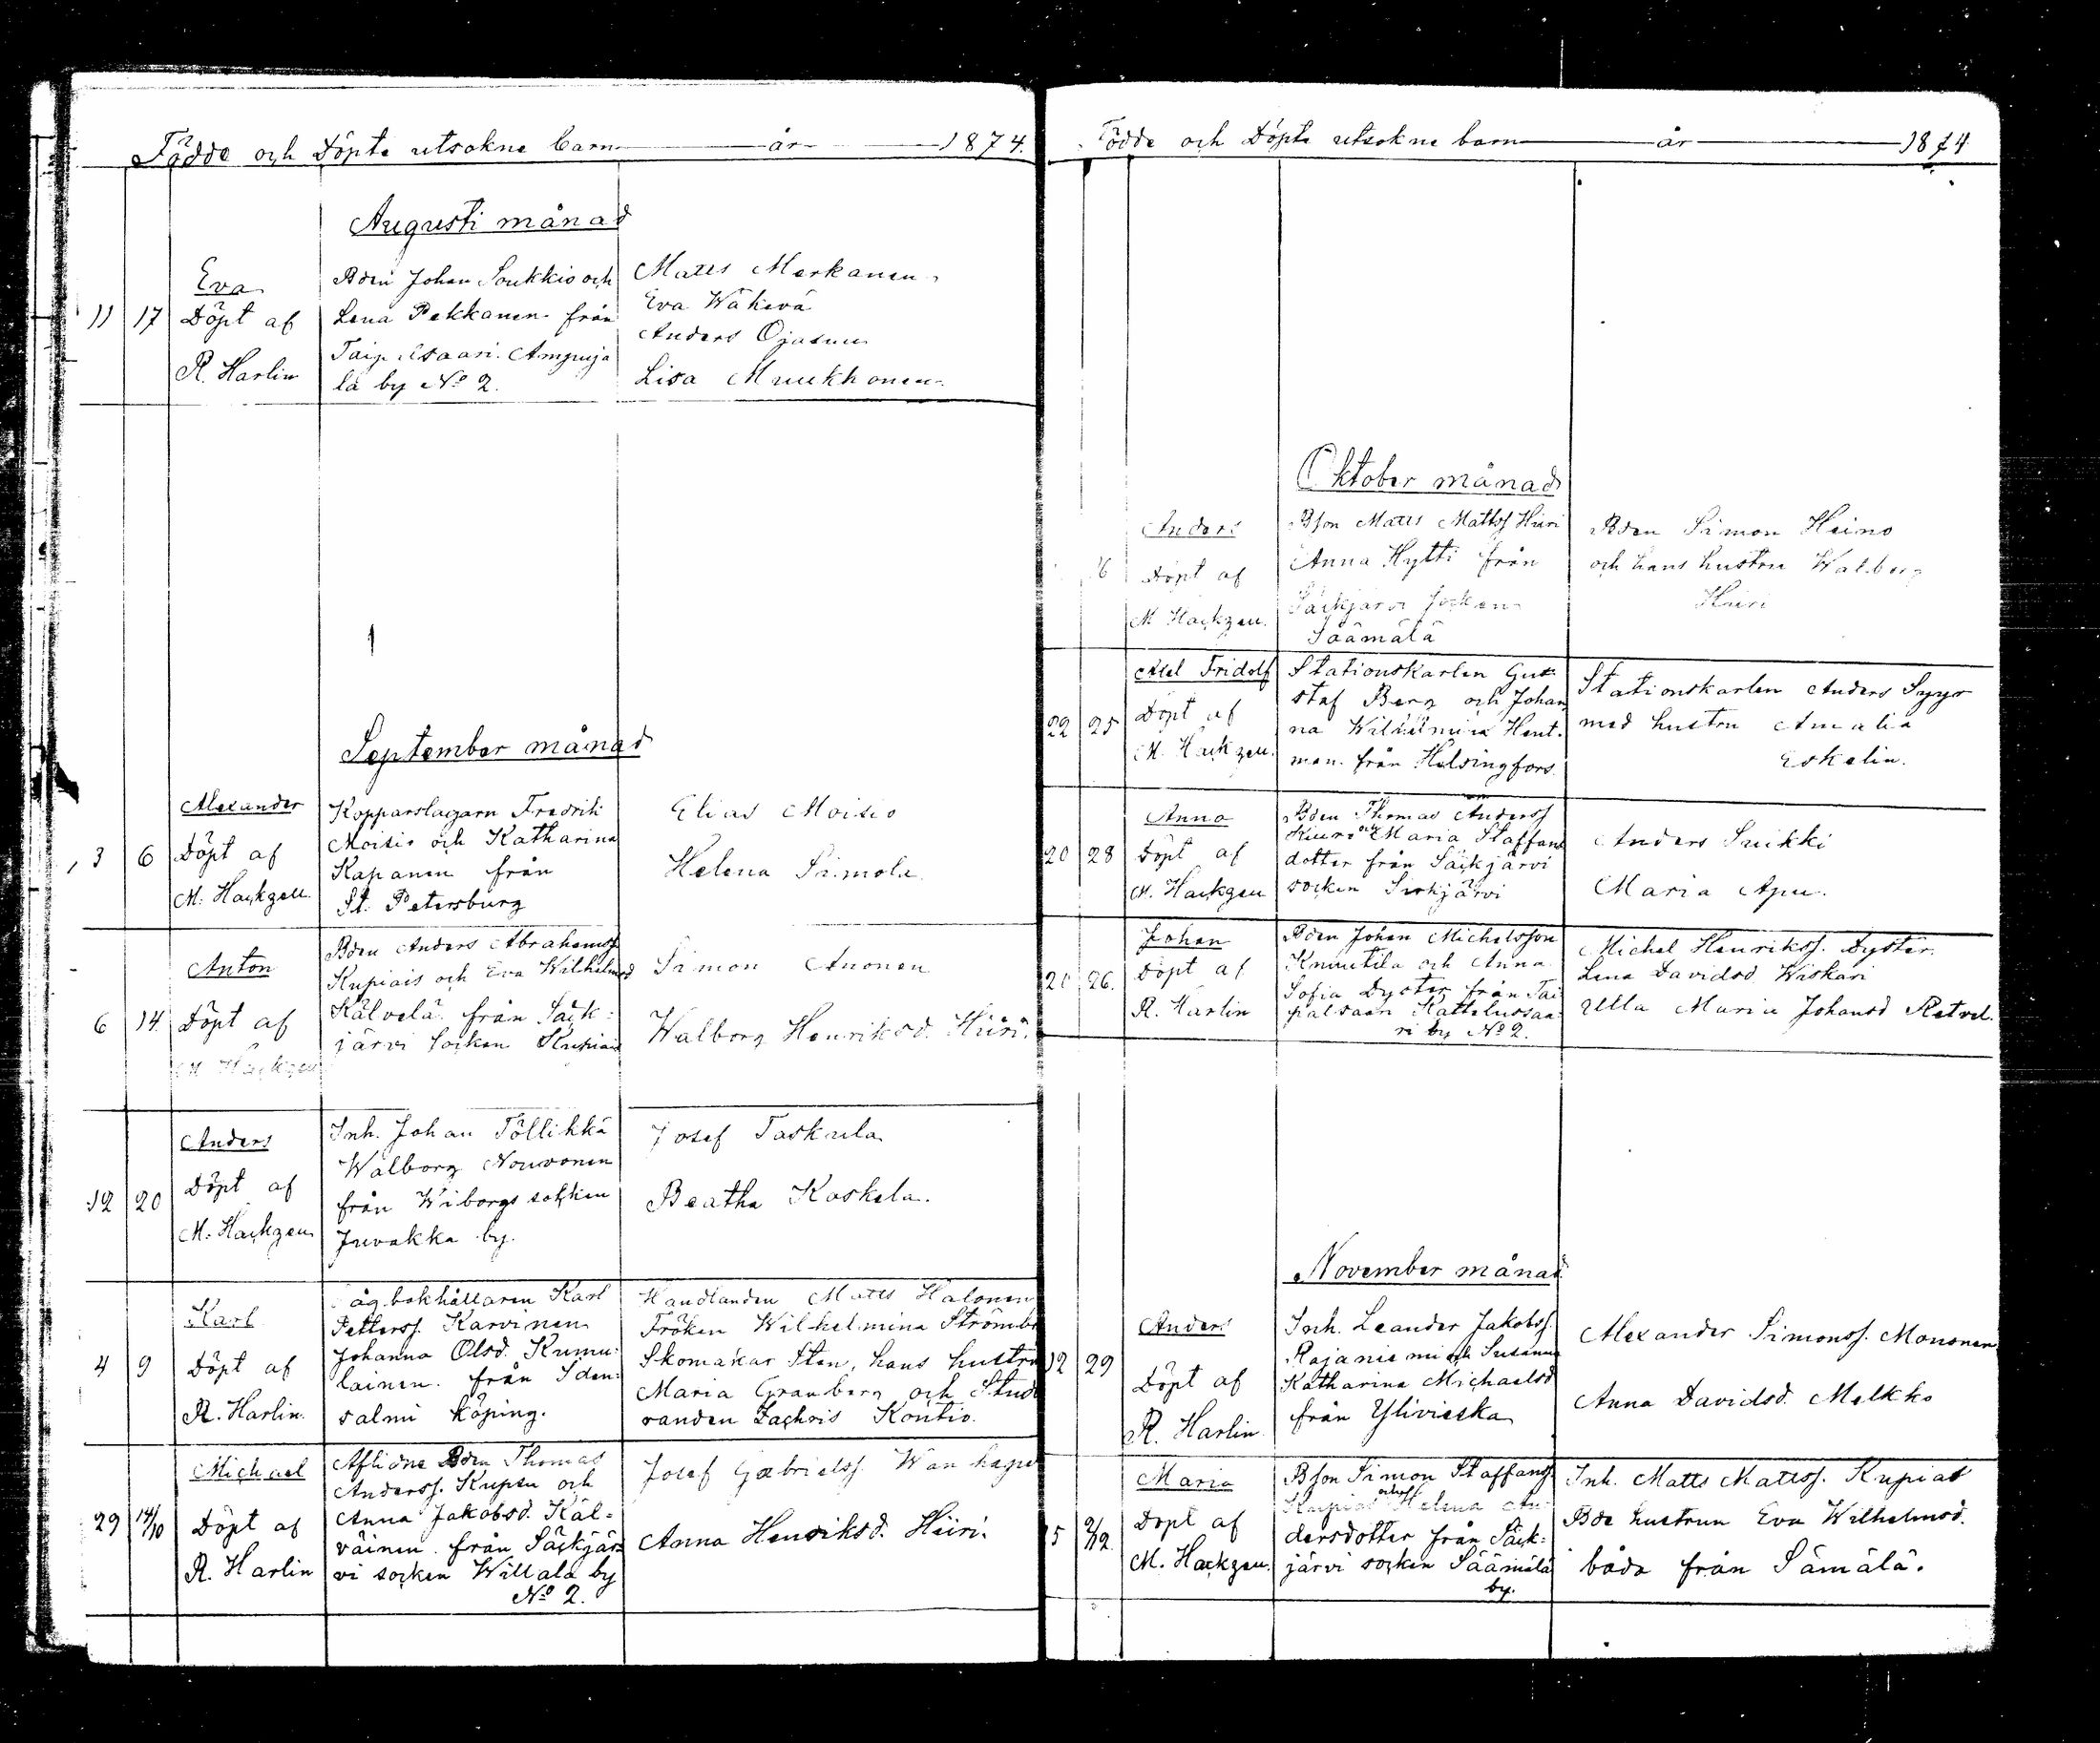 Födde och Döpte utsokne barn år 1874.
Augusti månad
11 17 Eva
Döpt af
R. Harlin
Bden Johan Soukkio och
Lena Pekkanen från
Taipalsaari Ampuja
la by No 2.
Matts Merkanen
Eva Wäkevä
Anders Ojanen
Lisa Muukkonen
September månad
3 6 Alexander
Döpt af
M. Hackzell
Kopparslagarn Fredrik
Moisio och Katharina
Kapanen från
St. Petersburg
Elias Moisio
Helena Simola
6 14 Anton
Döpt af
M. Hackzell
Bden Anders Abrahamss
Kupiais och Eva Wilhelmsd
Kälvelä från Säck=
järvi socken Kupiais
Simon Anonen
Walborg Henriksd. Hiiri.
12 20 Anders
Döpt af
M. Hackzell
Inh. Johan Töllikkä
Walborg Nouvonen
från Wiborgs socken
Juvakka by.
Josef Taskula
Beatha Koskela.
4 9 Karl
Döpt af
R. Harlin.
bokhållaren Karl
Petterss. Karvinen
Johanna Olsd. Kumu=
lainen från Iden=
salmi köping.
Handlanden Matts Halonen
Fröken Wilhelmina Strömbe
Skomakar Sten, hans hustru
Maria Granberg och Stude
randen Zachris Kontio.
29 14/10 Michael
Döpt af
R. Harlin
Aflidne Bden Thomas
Anderss. Kupsu och
Anna Jakobsd. Käl=
väinen från Säckjär
vi socken Willala by
No 2.
Josef Gabrielss. Wan
Anna Henriksd. Hiiri.
Födde och Döpte utsokne barn år 1874
Oktober månad
6 Anders
Döpt af
M Hackzell.
Bson Matts Mattss Hiiri
Anna Hytti från
Säckjärvi socken
Säämälä
Bden Simon Heino
och hans hustru Walborg
Hiiri
22 25 Axel Fridolf
Döpt af
M. Hackzell.
Stationskarlen Gus
taf Berg och Johan
na Wilhelmina Hent.
men från Helsingfors.
Stationskarlen Anders Syyr
med hustru Amalia
Eskelin.
20 28 Anna
Döpt af
M. Hackzell
Bden Thomas Anderss
Kiuru och Maria Staffans
dotter från Säckjärvi
socken Sirkjärvi
Anders Suikki
Maria Apu.
20 26. Johan
Döpt af
R. Harlin
Bden Johan Michelsson
Knuutila och Anna
Sofia Dyster från Tai
palsaari Kattelussaa
ri by No 2.
Michel Henrikss. Dyster.
Lena Davidsd. Wiskari
Ulla Maria Johansd Retvel.
November månad
12 29 Anders
Döpt af
R. Harlin
Inh. Leander Jakobss.
Rajaniemi och Susanna
Katharina Michaelsd
från Ylivieska
Alexander Simonss. Mononen
Anna Davidsd. Melkko
15 2/12. Maria
Döpt af
M. Hackzell.
Bson Simon Staffanss
Kupias och Helena An=
dersdotter från Säck=
järvi socken Säämälä
by.
Inh. Matts Mattss. Kupias
Bde hustrun Eva Wilhelmsd.
båda från Sämälä.